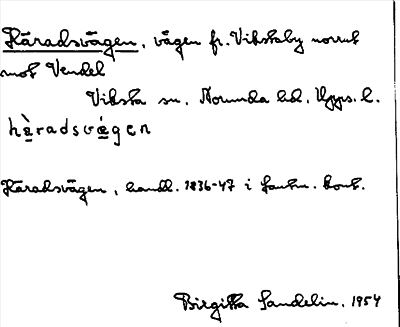 Häradsvägen, vägen fr. Vikstaby norrut
mot Vendel
Viksta sn. Norunda hd. Upps. l.
hä̀radsvä́gen
Häradsvägen, handl. 1836-47 i lantm. kont.
Birgitta Sandelin. 1954